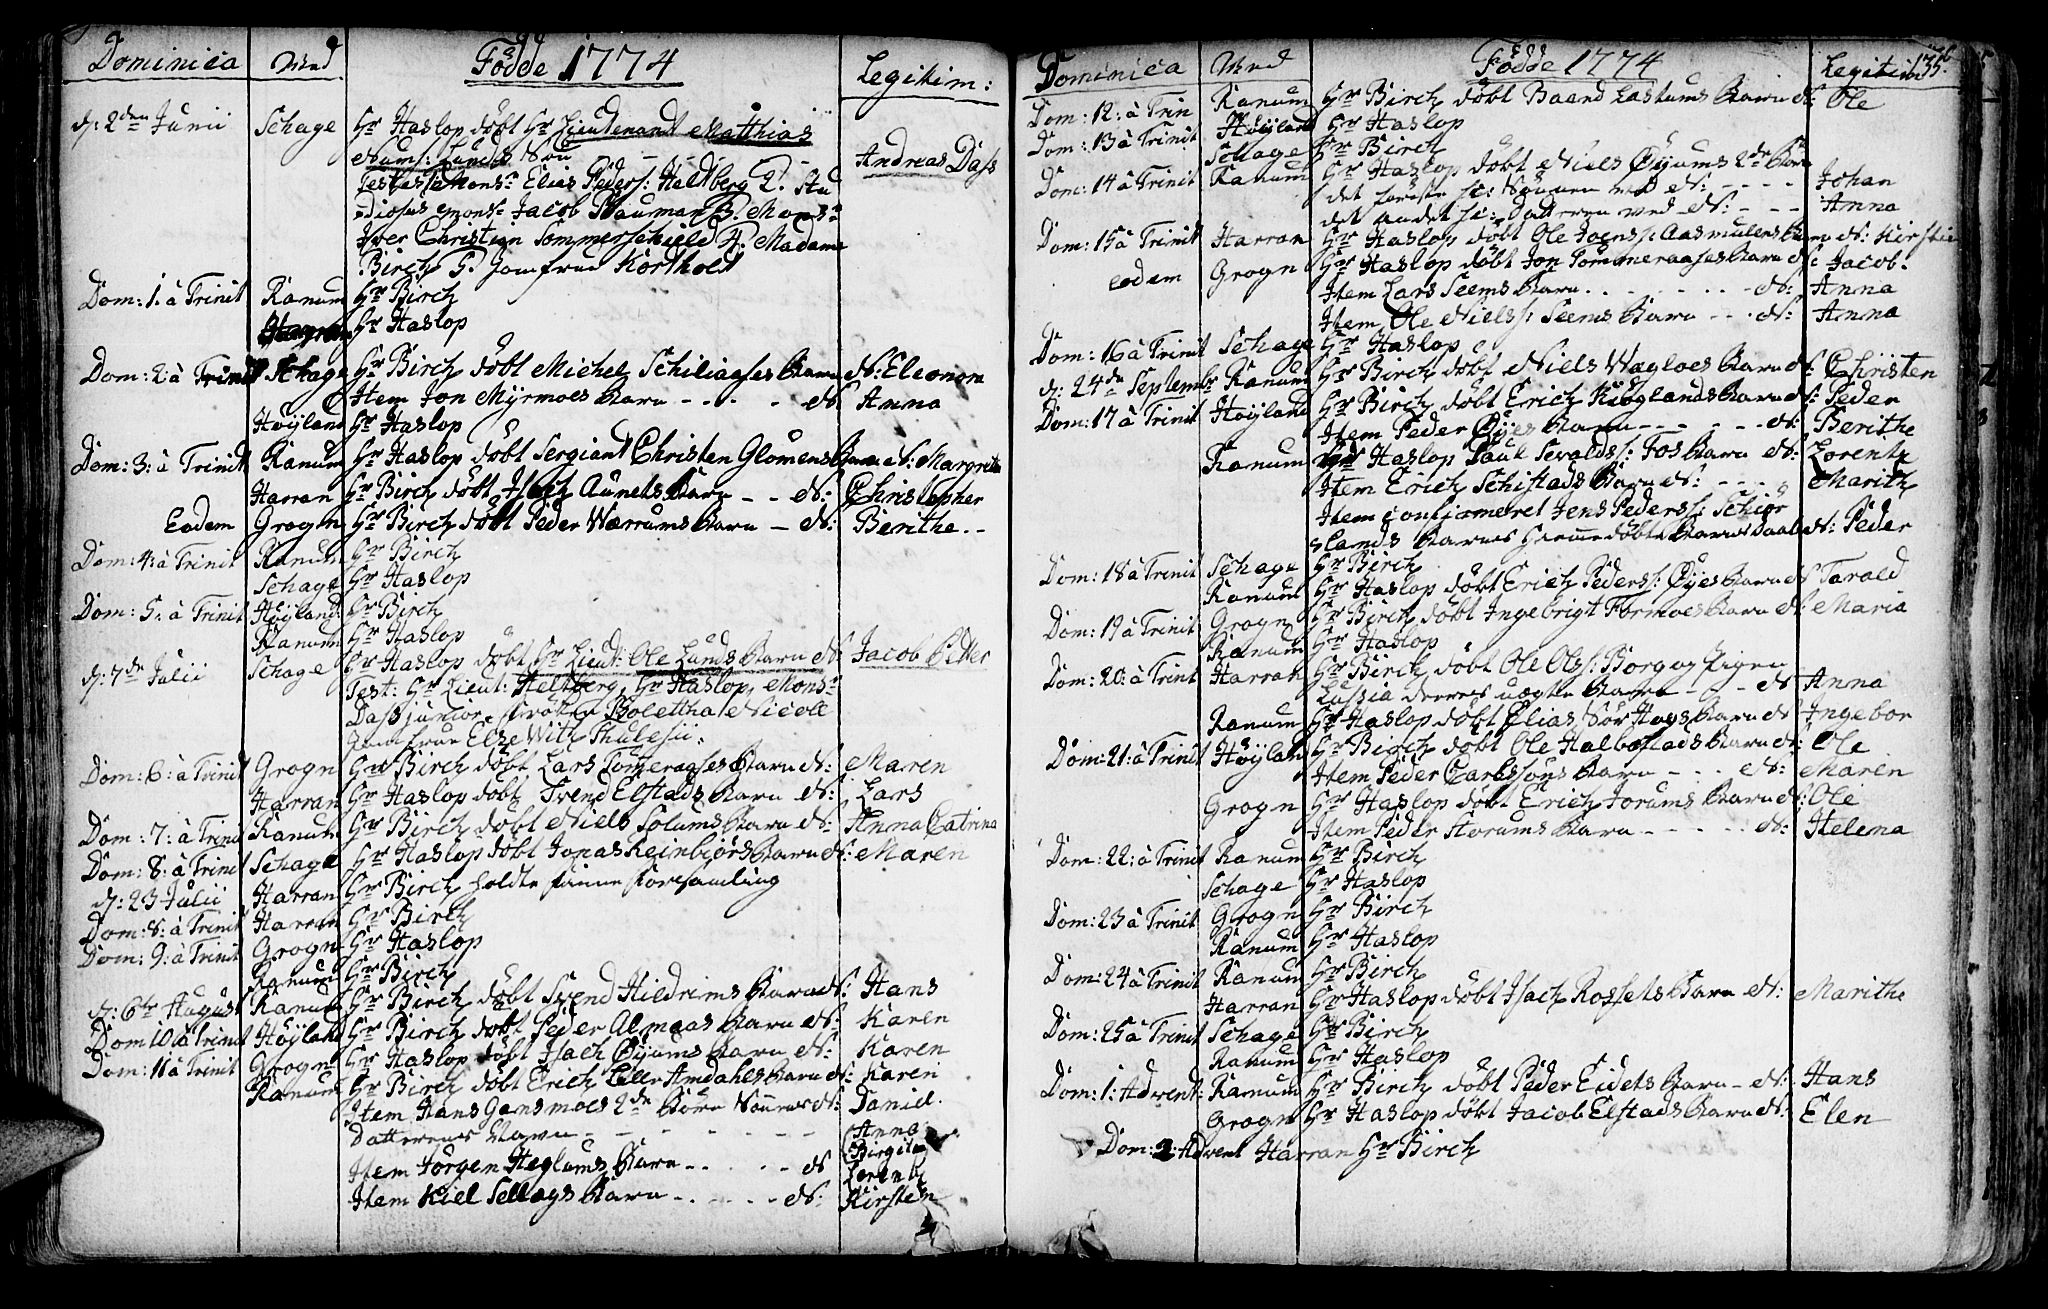 Dominica Ved Fødde 1774 Legitim:
d: 2den Junii Schage Hr Haslop døbt Hr Lieutenant Matthias
Nums: Lunds Søn - - Andreas Dass
Testes Mons: Elias Peders: Heltberg 2. Stu
diosus Mons: Jacob Bauman 3. Mons:
Iver Christian Sommerschield 4. Madame
Birch 5. Jomfrue Kortholt
Dom: 1. à Trinit Ranum Hr Birch
Hr Haslop
Dom: 2 à Trinit Schage Hr Birch døbt Michel Schiliaases Barn N: Eleonora
Item Jon Myrmoes Barn - - - - N: Anna
Høyland Hr Haslop
Dom: 3: à Trinit Ranum Hr Haslop døbt Sergiant Christen Glømens Barn N: Margrete
Harran Hr Birch døbt Isach Aunets Barn - - N: Christopher
Eodem Grogn Hr Birch døbt Peder Wærrums Barn - N: Berithe. -
Dom: 4: à Trinit Ranum Hr Birch
Schage Hr Haslop
Dom: 5. à Trinit Høyland Hr Birch
Ranum Hr Haslop
d: 7de Julii Schage Hr Haslop døbt Hr Lieut: Ole Lunds Barn N: Jacob Petter
Test: Hr Lieut: Heltberg, Hr Haslop, Mons:
Dass junior, Frøken Bolettha Nicole
Jomfrue Else Witz Thulesii.
Dom: 6: à Trinit Grogn Hr Birch døbt Lars Tømeraases Barn N: Maren
Harran Hr Haslop døbt Trend Elstads Barn N: Lars
Dom: 7: à Trinit Ranum Hr Birch døbt Niels Solums Barn N: Anna Catrina
Dom: 8: à Trinit Schage Hr Haslop døbt Jonas Reinbjørs Barn N: Maren
d: 23 Julii Harran Hr Birch holdte Finne Forsamling
Dom: 8: à Trinit Harran Hr Birch
Dom: 9: à Trinit Grogn Hr Haslop
Ranum Hr Birch
d: 6te August Ranum Hr Birch døbt Svend Hildrims Barn N: Hans
Dom 10 à Trinit Høyland Hr Birch døbt Peder Almaas Barn N: Karen
Dom: 11 à Trinit Grogn Hr Haslop døbt Isach Øyums Barn N: Karen
Ranum Hr Birch døbt Erich Lille Amdahls Barn N: Karen
Item Hans Gansmoes 2de Børn Sønnens N: Daniel.
Datterens Navn - - - - - - Anna
Birgita
Item Jørgen Heglums Barn - - - - N Lorentz
Item Kiel Sellægs Barn - - - - N: Kirsten
Dominica Ved Fødde 1774 Legitim
Dom: 12: à Trin Ranum Hr Birch døbt Baend Lastums Barn N: Ole
Høyland Hr Haslop
Dom: 13 à Trinit Schage Hr Birch
Dom: 14 à Trinit Ranum Hr Haslop døbt Niels Øyums 2de Børn
det første sc: Sønnen ved N: - - - - Johan
det andet sc: Datteren ved N: - - - Anna
Dom: 15 à Trinit Harran Hr Haslop døbt Ole Joens: Aasmulens Barn N: Kirstie
eodem Grogn Hr Haslop døbt Jon Tømmeraases Barn N: Jacob.
Item Lars Seems Barn - - - - - - N: Anna
Item Ole Niels: Seems Barn - - - N: Anna
Dom: 16 à Trinit Schage Hr Haslop
d: 24de Septembr Ranum Hr Birch døbt Niels Wægloes Barn N: Christen
Dom: 17 à Trinit Høyland Hr Birch døbt Erich Kiøglands Barn N: Peder
Item Peder Øyes Barn - - - - - N: Berithe
Ranum Hr Haslop Paul Sevalds: Fos Barn N: Lorentz
Item Erich Schistads Barn N: - - - Marith
Item confirmeret Jens Peders: Schiør
slands Barnes Hiemmedøbte Barns Daab N: Peder
Dom: 18 à Trinit Schage Hr Birch
Ranum Hr Haslop døbt Erich Peders: Øyes Barn N Tarald
Dom: 19 à Trinit Grogn Hr Birch døbt Ingebrigt Formoes Barn N: Maria
Ranum Hr Haslop
Dom: 20: à Trinit Harran Hr Birch døbt Ole Ols: Borg og Pigen
Lussia deres uægte Barn - - - N Anna
Ranum Hr Haslop døbt Elias Nør Høys Barn N Ingebor
Dom: 21: à Trinit Høyland Hr Birch døbt Ole Halbostads Barn N: Ole
Item Peder Carlssøns Barn - - - N: Maren
Grogn Hr Haslop døbt Erich Jorums Barn N: Ole
Item Peder Storums Barn - - - - N: Helena
Dom: 22: à Trinit Ranum Hr Birch
Schage Hr Haslop
Dom: 23 à Trinit Grogn Hr Birch
Ranum Hr Haslop
Dom: 24 à Trinit Ranum Hr Birch
Harran Hr Haslop døbt Isach Rossets Barn N: Marithe
Dom: 25 à Trinit Schage Hr Birch
Ranum Hr Haslop
Dom: 1: Advent: Ranum Hr Birch døbt Peder Eidets Barn - N: Hans
Grogn Hr Haslop døbt Jacob Elstads Barn N: Elen
Dom: 2: Advent Harran Hr Birch